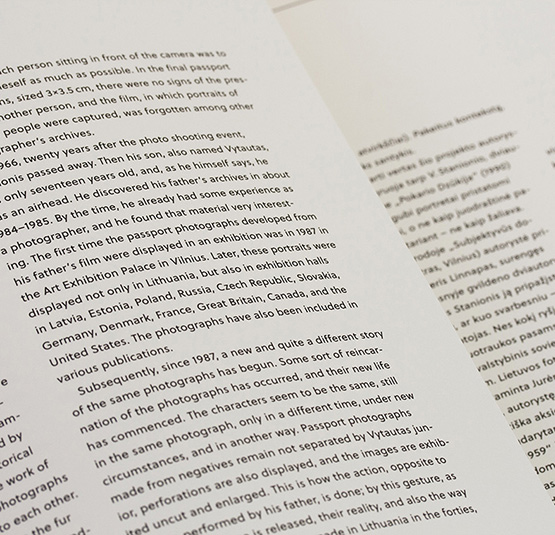 e
am-
d by
torical
e work of
hotographs
to each other.
the fur
nd-
ch person sitting in front of the camera was to
neself as much as possible. In the final passport
ns, sized 3×3.5 cm, there were no signs of the pres-
nother person, and the film, in which portraits of
people were captured, was forgotten among other
rapher's archives.
966, twenty years after the photo shooting event,
onis passed away. Then his son, also named Vytautas,
only seventeen years old, and, as he himself says, he
as an airhead. He discovered his father's archives in about
984–1985. By the time, he already had some experience as
a photographer, and he found that material very interest-
ing. The first time the passport photographs developed from
his father's film were displayed in an exhibition was in 1987 in
the Art Exhibition Palace in Vilnius. Later, these portraits were
displayed not only in Lithuania, but also in exhibition halls
in Latvia, Estonia, Poland, Russia, Czech Republic, Slovakia,
Germany, Denmark, France, Great Britain, Canada, and the
United States. The photographs have also been included in
various publications.
Subsequently, since 1987, a new and quite a different story
of the same photographs has begun. Some sort of reincar-
nation of the photographs has occurred, and their new life
has commenced. The characters seem to be the same, still
in the same photograph, only in a different time, under new
circumstances, and in another way. Passport photographs
made from negatives remain not separated by Vytautas jun-
ior, perforations are also displayed, and the images are exhib-
ited uncut and enlarged. This is how the action, opposite to
performed by his father, is done; by this gesture, as
is released, their reality, and also the way
ade in Lithuania in the forties,
Pakeitus kontekstą,
as santykis.
verti vertas šio projekto autorys-
tarp V. Stanionio, dviau-
„Pokario Dzūkija" (1990)
gubi portretai pristatomi
, o ne kaip juodraštinė pa-
tariant – ne kaip žaliava.
odoje „Subjektyvūs do-
ras, Vilnius) autorystė pri-
eris Linnapas, surengęs
snyje gvildeno dviautor
s Stanionis ją pripažįs
, ar kuo svarbesniu
tojas. Nes kokį ryšį
otraukos pasam
valstybinis sovie
n. Lietuvos fo
aminta Jurė
autorystę
iška aks
idaryta
959"
for